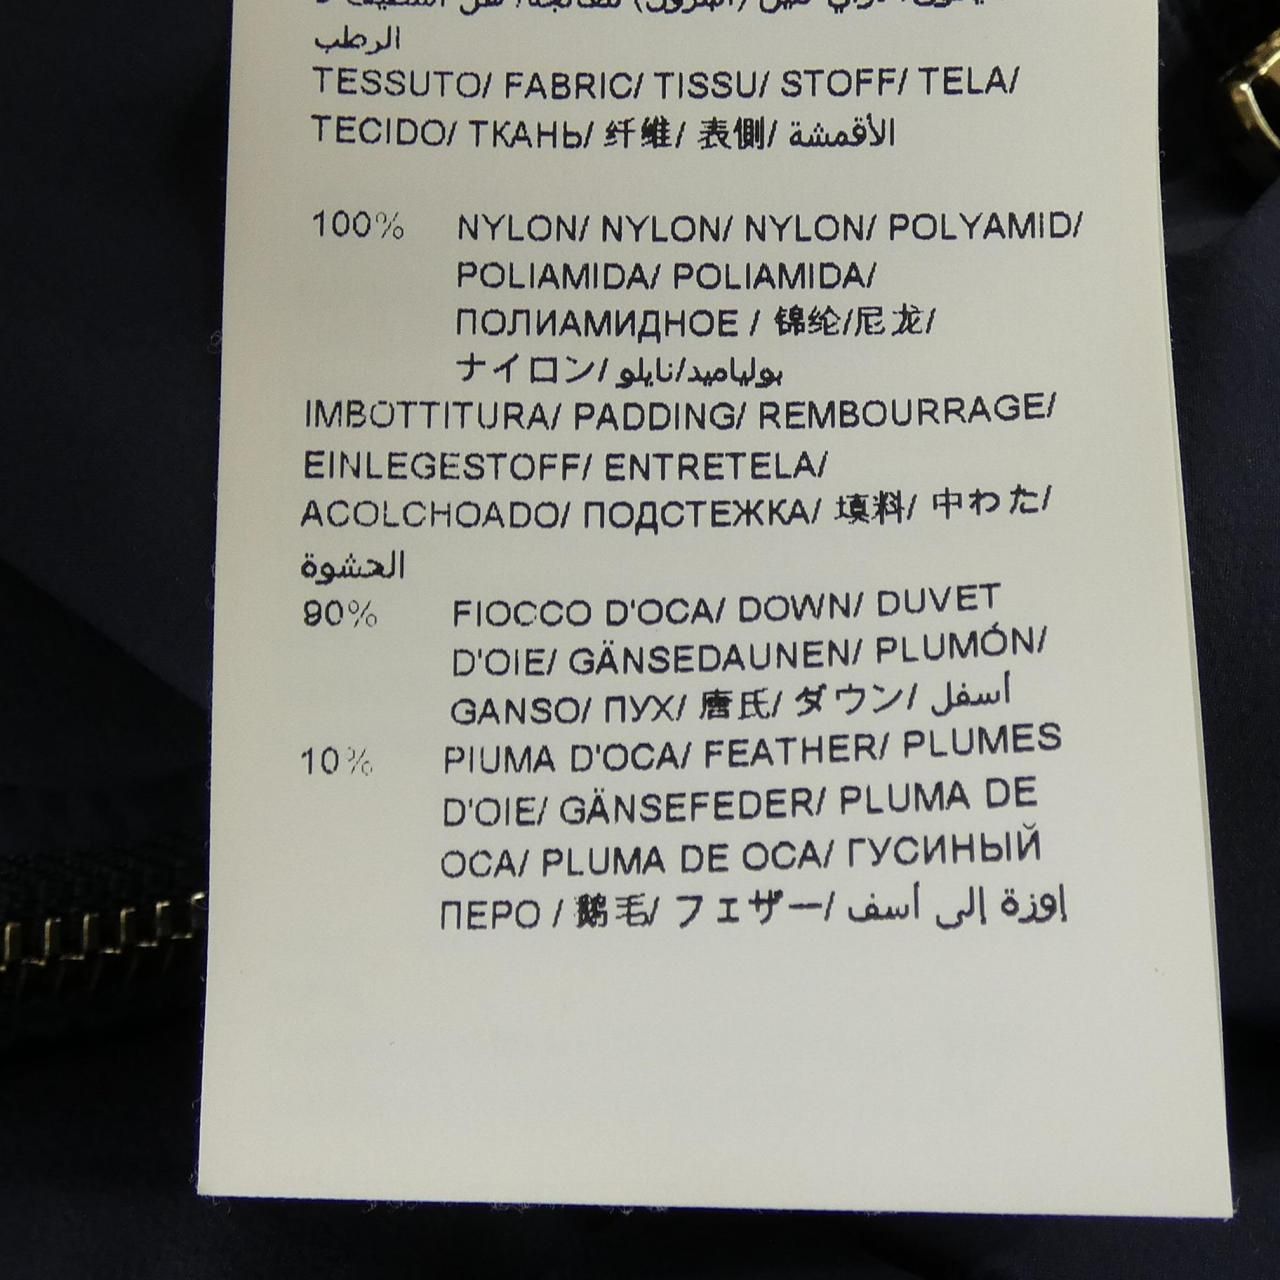 الرطب
TESSUTO/ FABRIC/ TISSU/ STOFF/ TELA/
TECIDO/ ТКАНЬ/ 纤维/ 表側/ الأقمشة
100% NYLON/ NYLON/ NYLON/ POLYAMID/
POLIAMIDA/ POLIAMIDA/
ПОЛИАМИДНОЕ / 锦纶/尼龙/
ナイロン/ بولياميد/نايلو
IMBOTTITURA/ PADDING/ REMBOURRAGE/
EINLEGESTOFF/ ENTRETELA/
ACOLCHOADO/ ПОДСТЕЖКА/ 填料/ 中わた/
الحشوة
90% FIOCCO D'OCA/ DOWN/ DUVET
D'OIE/ GÄNSEDAUNEN/ PLUMÓN/
GANSO/ ПУХ/ 唐氏/ ダウン/ أسفل
10% PIUMA D'OCA/ FEATHER/ PLUMES
D'OIE/ GÄNSEFEDER/ PLUMA DE
OCA/ PLUMA DE OCA/ ГУСИНЫЙ
ПЕРО / 鹅毛/ フェザー/ إوزة إلى أسف